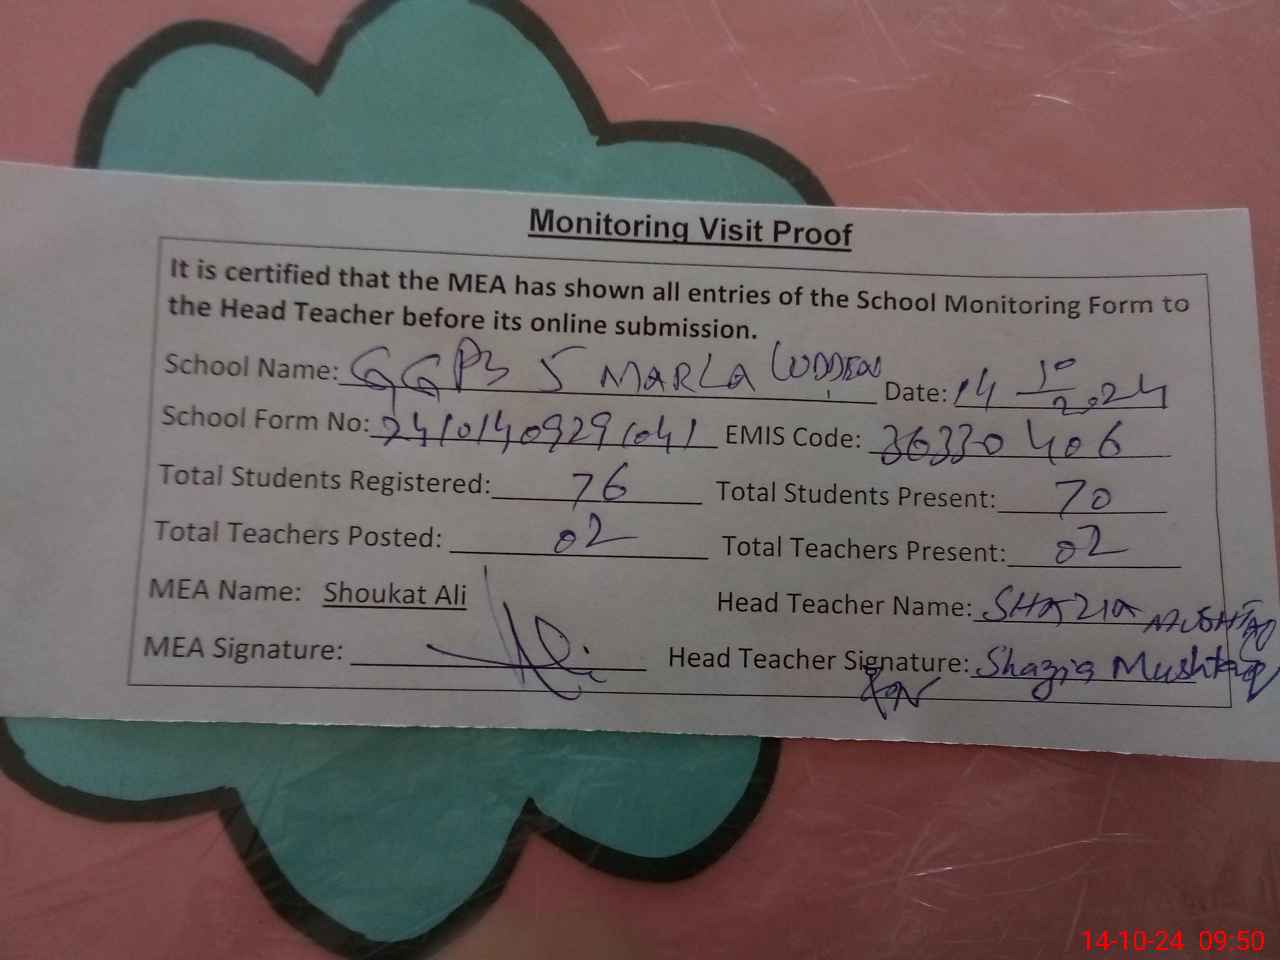 Monitoring Visit Proof
It is certified that the MEA has shown all entries of the School Monitoring Form to
the Head Teacher before its online submission.
School Name: GGPS 5 MARLA LUDDEN Date: 14 10/2024
School Form No: 24101409291041 EMIS Code: 36330406
Total Students Registered: 76 Total Students Present: 70
Total Teachers Posted: 02 Total Teachers Present: 02
MEA Name: Shoukat Ali Head Teacher Name: SHAZIA MUSHTAQ
MEA Signature: Ali Head Teacher Signature: Shazia Mushtaq
14-10-24 09:50